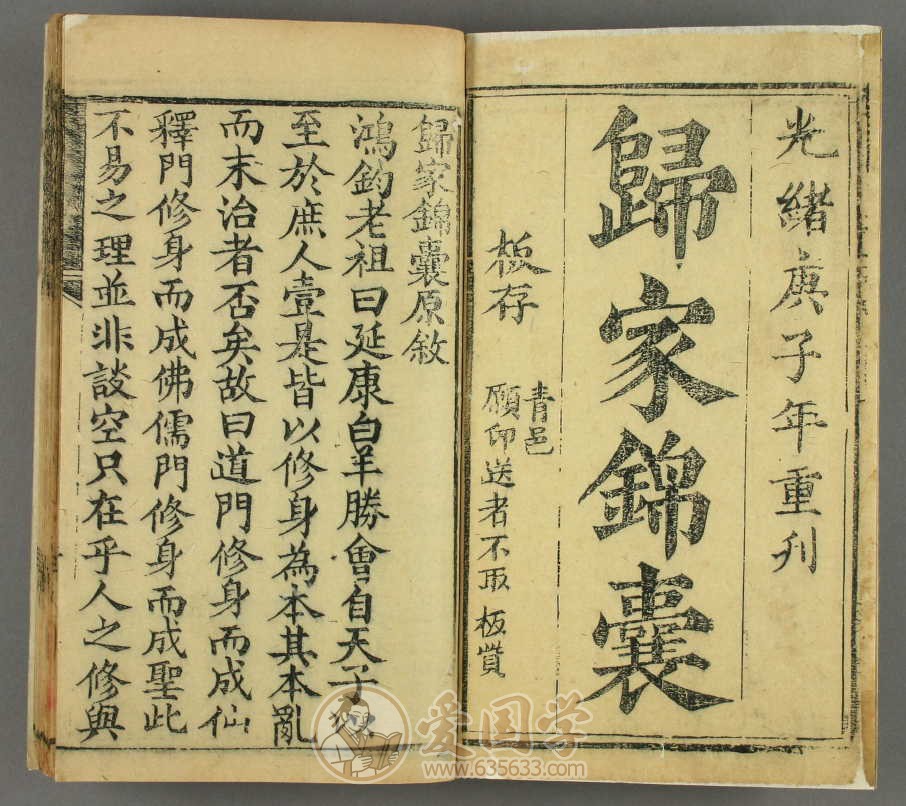 光緒庚子年重刋
歸家錦囊
板存
青邑
願印送者不取板貲
歸家錦囊原敘
鴻鈞老祖曰延康白羊勝會自天子以
至於庶人壹是皆以修身為本其本亂
而末治者否矣故曰道門修身而成仙
釋門修身而成佛儒門修身而成聖此
不易之理並非談空只在乎人之修與
爱国学
www.635633.com